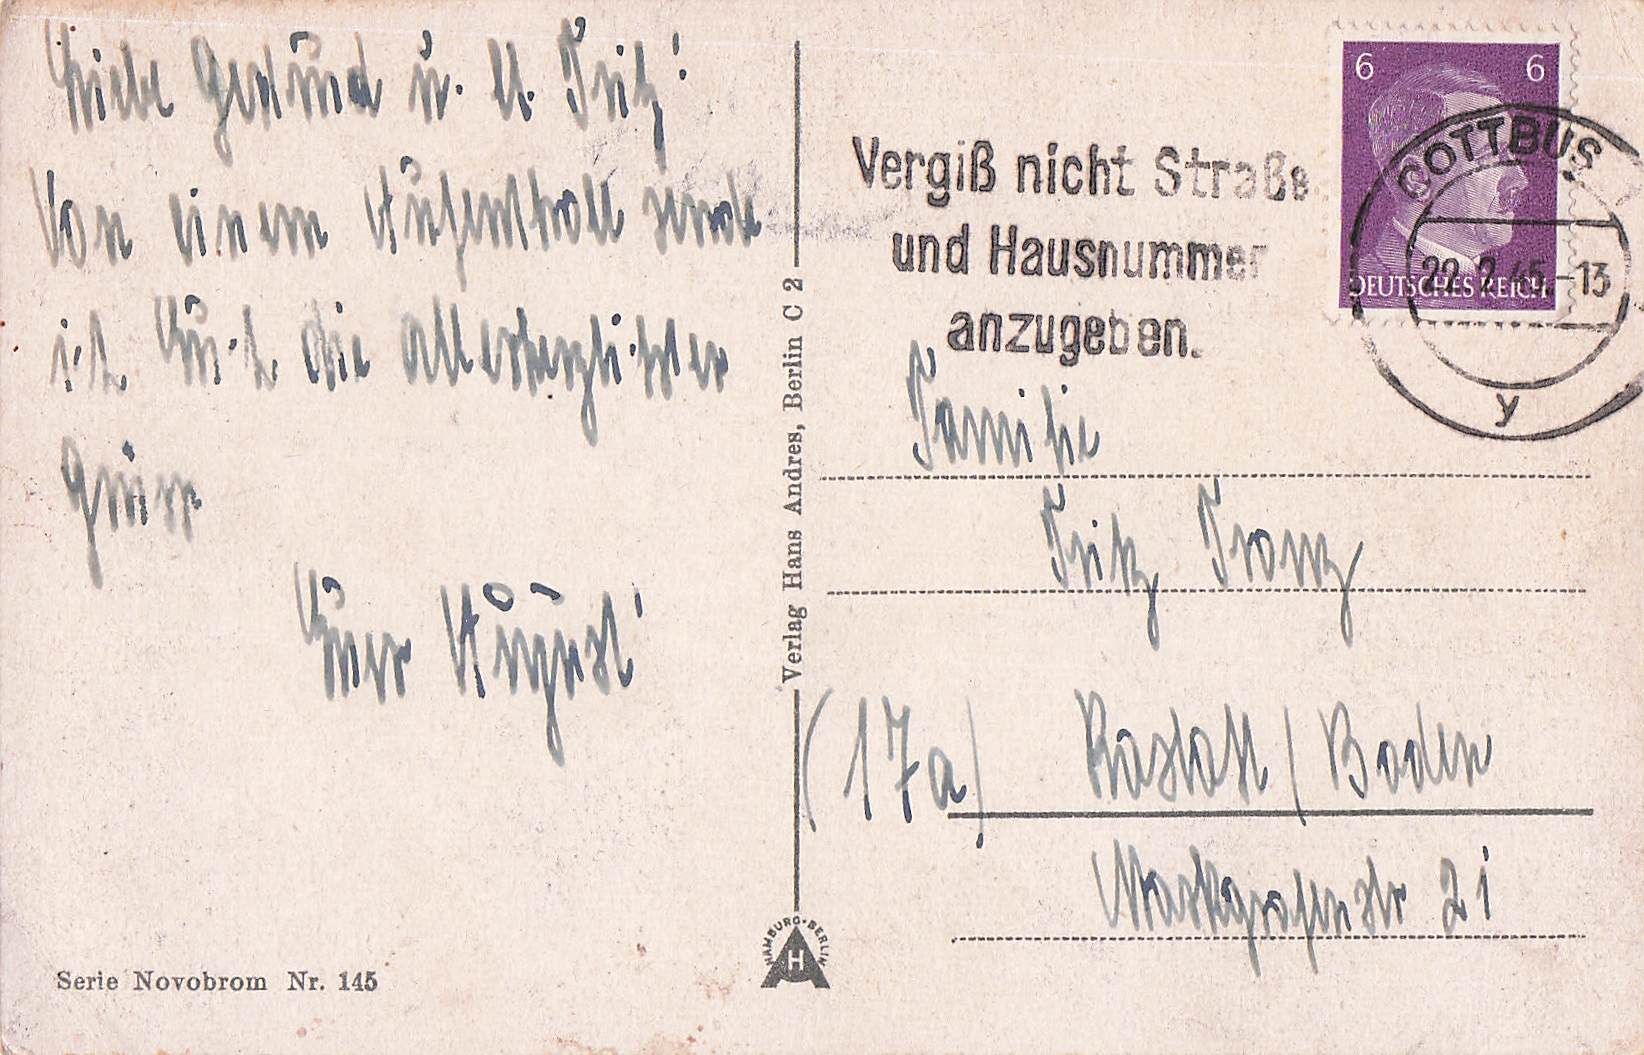 Liebe Gertrud u. U. Fritz!
Von einem Aufenthalt sende
ich Euch die allerherzlichsten
Grüsse
Euer August
Serie Novobrom Nr. 145
Verlag Hans Andres, Berlin C 2
HAMBURG-BERLIN
H
Vergiß nicht Straße
und Hausnummer
anzugeben.
6 6
DEUTSCHES REICH
COTTBUS
22.2.45-13
y
Familie
Fritz Franz
(17a) Rastatt / Baden
Markgrafenstr 21